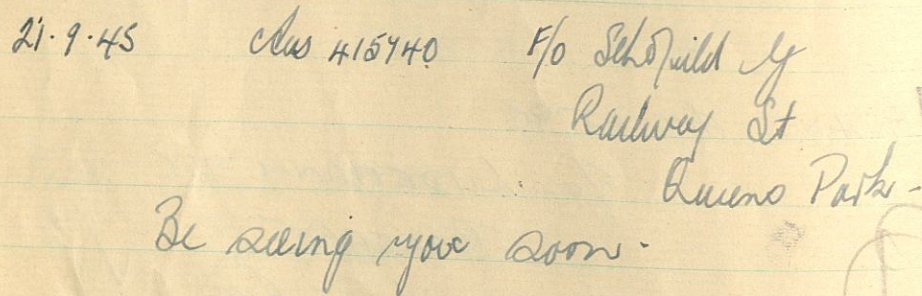 21.9.45 Aus 415740 F/O Schofield G
Railway St
Queens Park -
Be seeing you soon.